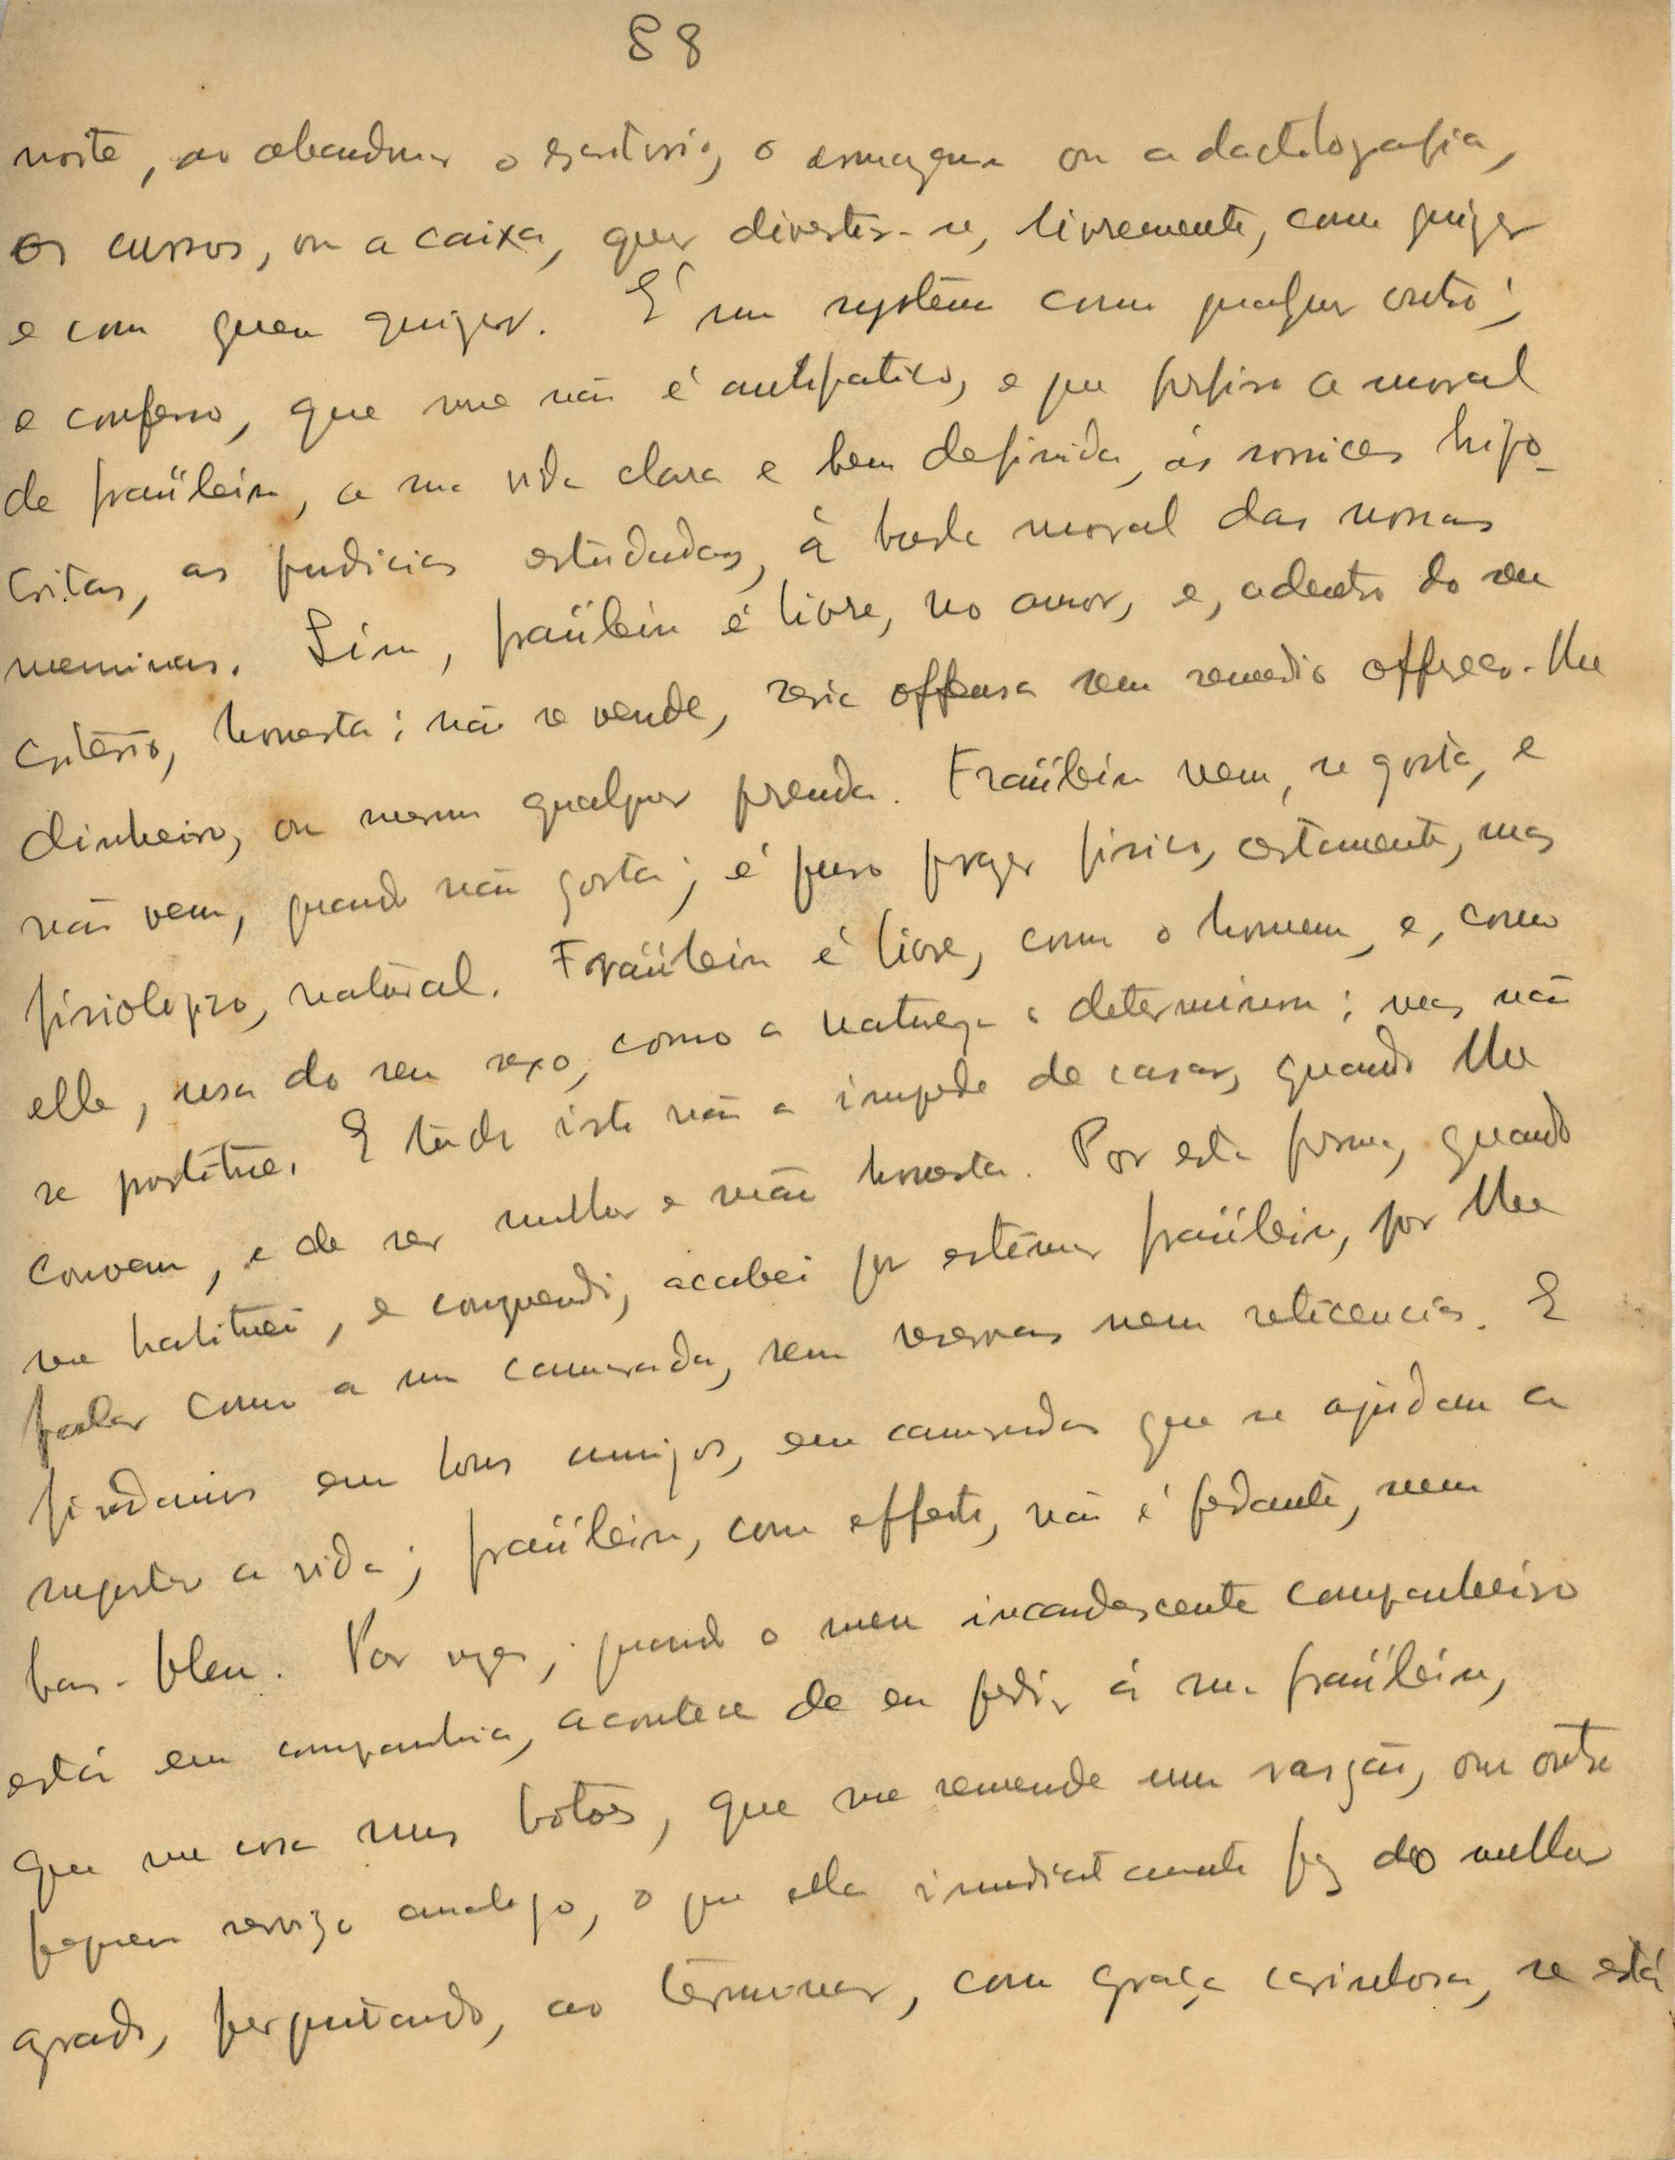 88
noite, ao abandonar o escritorio, o armazem ou a dactilografia,
os cursos, ou a caixa, quer divertir-se, livremente, como quizer
e com quem quizer. É um systema como qualquer outro;
e confesso, que me não é antipatico, e que prefiro a moral
de fraülein, a sua vida clara e bem definida, ás sonices hipo-
critas, as pudicicias estudadas, á moral das nossas
meninas. Sim, fraülein é livre, no amor, e, adentro do seu
criterio, honesta; não se vende, seria offensa sem remedio offrecer-lhe
dinheiro, ou mesmo qualquer prenda. Fraülein vem, se gosta, e
não vem, quando não gosta; é puro prazer fisico, certamente, mas
fisiologico, natural. Fraülein é livre, como o homem, e, como
elle, usa do seu sexo, como a natureza o determinou; mas não
se prostitue. E tudo isto não a impede de casar, quando lhe
convem, e de ser mulher e mãe honesta. Por esta forma, quando
me habituei, e comprendi, acabei por estimar fraülein, por lhe
falar como a um camarada, sem reservas nem reticencias. E
findamos em bons amigos, em camaradas que se ajudam a
suportar a vida; fraülein, com effeito, não é pedante, nem
bas-bleu. Por vezes, quando o meu incandescente companheiro
está em companhia, acontece de eu pedir á sua fraülein,
que me cosa uns botões, que me remende um rasgão, ou outro
pequeno serviço analogo, o que ella imediatamente faz do melhor
grado, perguntando, ao terminar, com graça carinhosa, se está